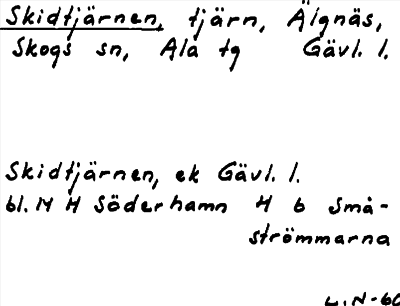 Skidtjärnen, tjärn, Älgnäs,
Skogs sn, Ala tg Gävl. l.
Skidtjärnen, ek Gävl. l.
bl. N H Söderhamn H 6 Små-
strömmarna
L.N-60